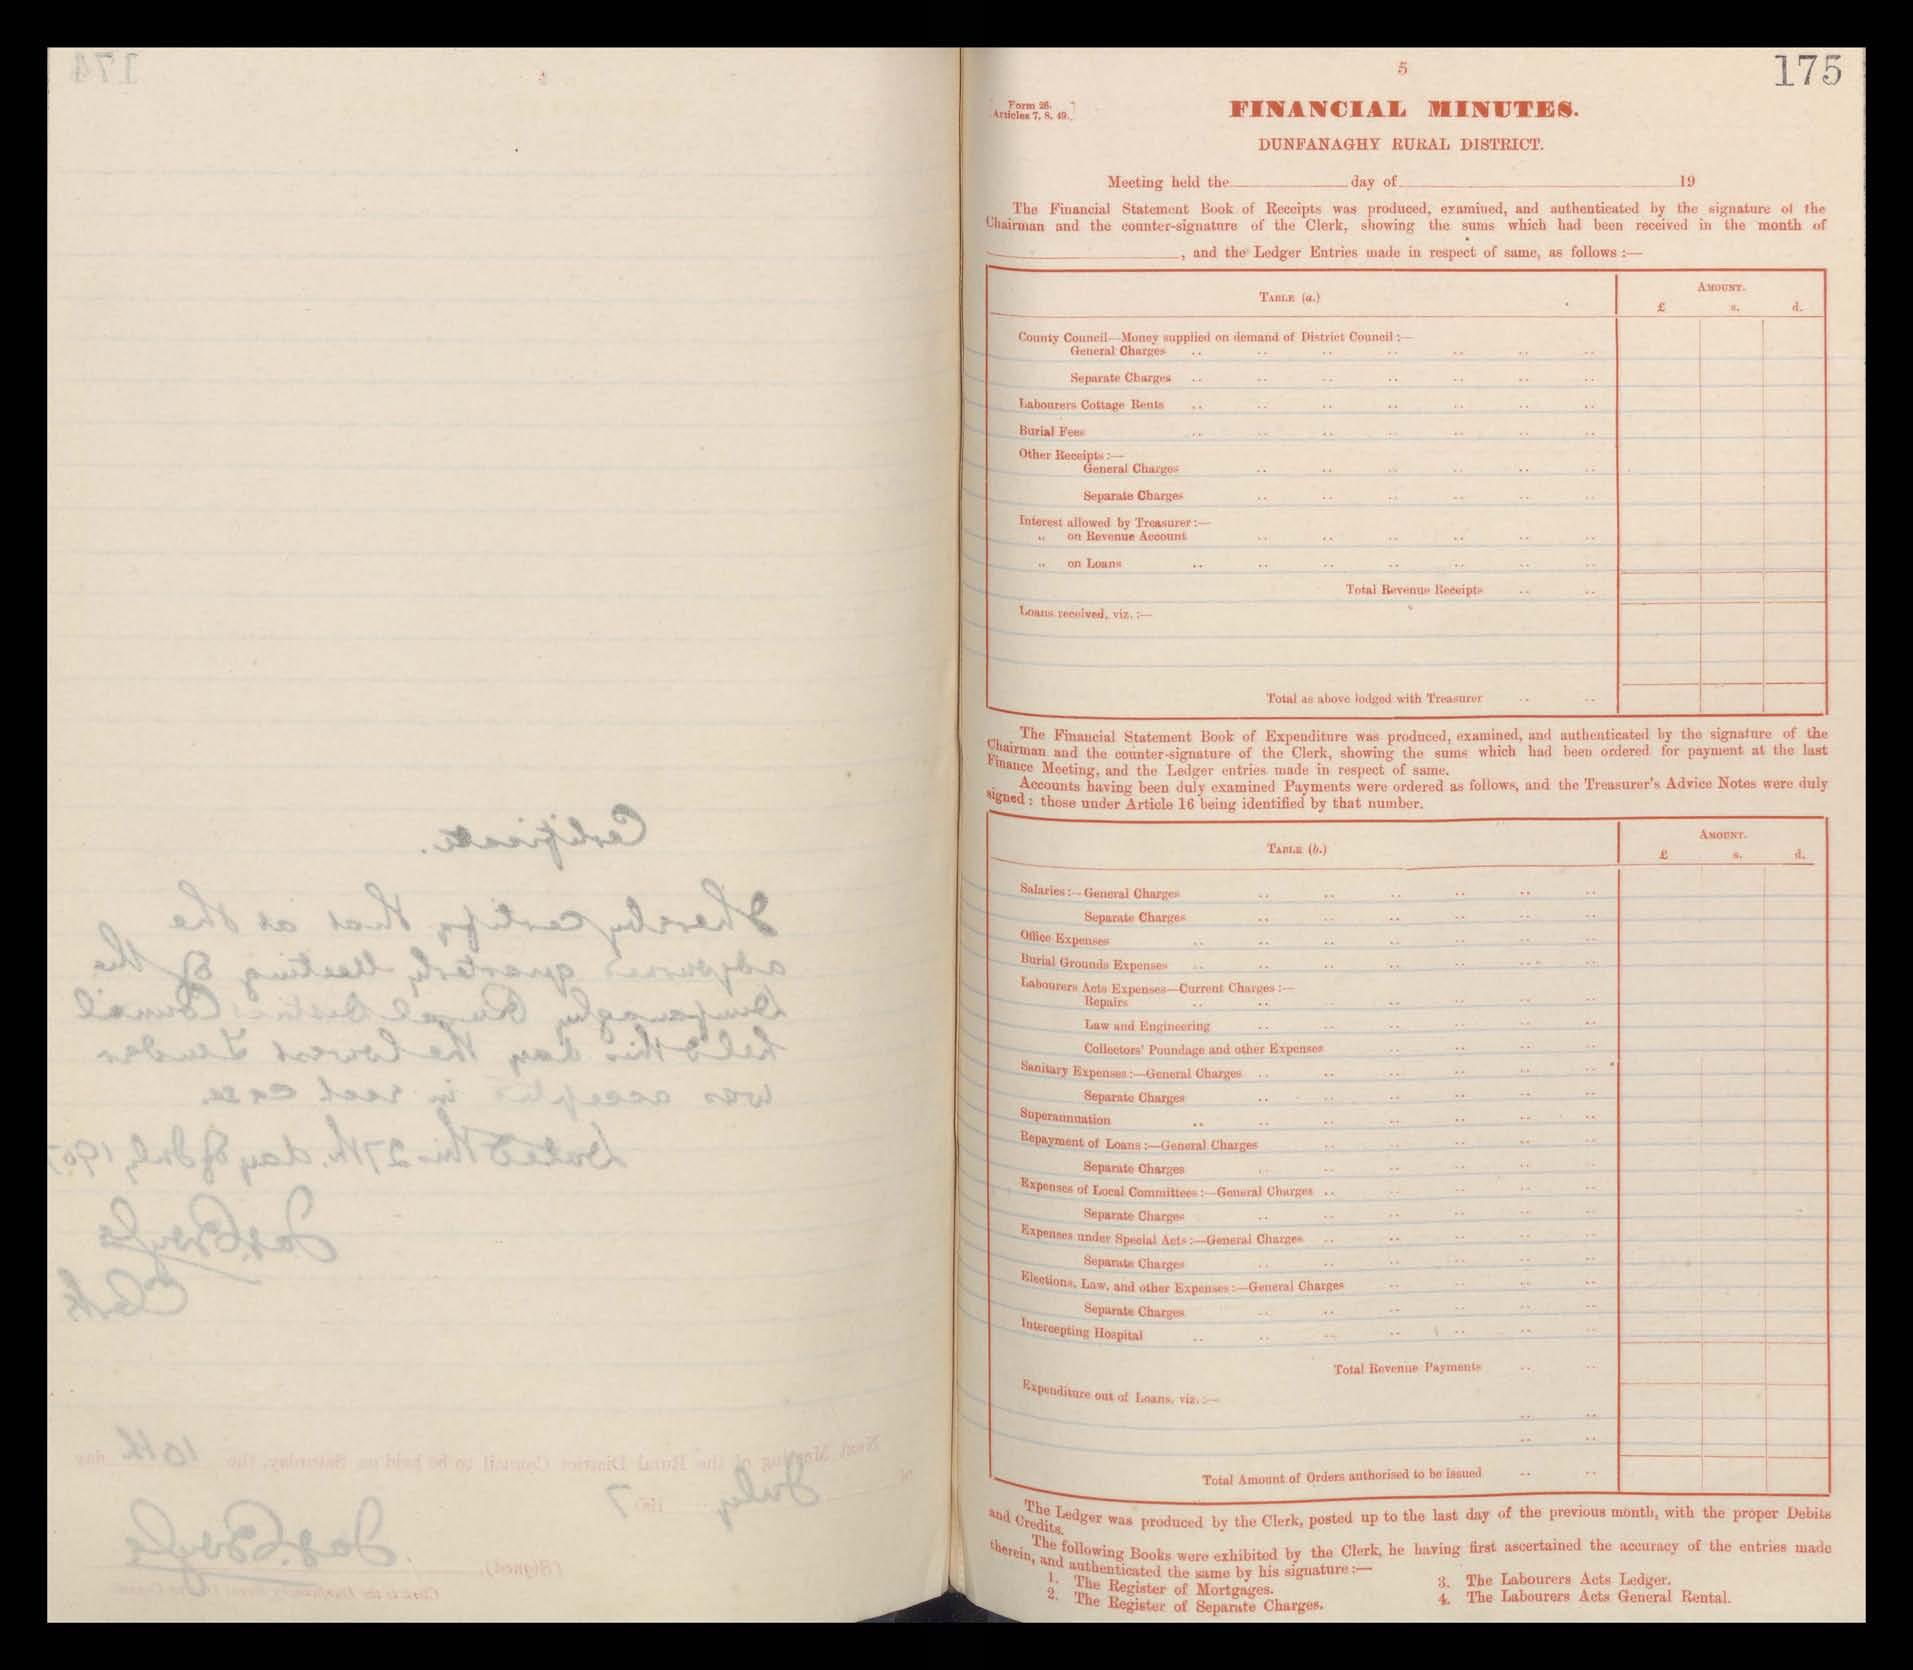 174
Certificate.
I hereby certify that at the
adjourned quarterly Meeting of the
Dunfanaghy Rural District Council
held this day the lowest Tender
was accepted in each case.
Dated this 27th. day of July, 1907
Jas. Boyle
Clerk
Next Meeting of the Rural District Council to be held on Saturday, the 10th day
of July 190 7
(Signed), Jas. Boyle
175
5
Form 26.
Articles 7, 8, 49.
FINANCIAL MINUTES.
DUNFANAGHY RURAL DISTRICT.
Meeting held the day of 19
The Financial Statement Book of Receipts was produced, examined, and authenticated by the signature of the
Chairman and the counter-signature of the Clerk, showing the sums which had been received in the month of
, and the Ledger Entries made in respect of same, as follows :—
TABLE (a.) AMOUNT.
£ s. d.
County Council—Money supplied on demand of District Council :—
General Charges
Separate Charges
Labourers Cottage Rents
Burial Fees
Other Receipts :—
General Charges
Separate Charges
Interest allowed by Treasurer :—
„ on Revenue Account
„ on Loans
Total Revenue Receipts
Loans received, viz. :—
Total as above lodged with Treasurer
The Financial Statement Book of Expenditure was produced, examined, and authenticated by the signature of the
Chairman and the counter-signature of the Clerk, showing the sums which had been ordered for payment at the last
Finance Meeting, and the Ledger entries made in respect of same.
Accounts having been duly examined Payments were ordered as follows, and the Treasurer's Advice Notes were duly
signed : those under Article 16 being identified by that number.
TABLE (b.) AMOUNT.
£ s. d.
Salaries :—General Charges
Separate Charges
Office Expenses
Burial Grounds Expenses
Labourers Acts Expenses—Current Charges :—
Repairs
Law and Engineering
Collectors' Poundage and other Expenses
Sanitary Expenses :—General Charges
Separate Charges
Superannuation
Repayment of Loans :—General Charges
Separate Charges
Expenses of Local Committees :—General Charges
Separate Charges
Expenses under Special Acts :—General Charges
Separate Charges
Elections, Law, and other Expenses :—General Charges
Separate Charges
Intercepting Hospital
Total Revenue Payments
Expenditure out of Loans, viz. :—
Total Amount of Orders authorised to be issued
The Ledger was produced by the Clerk, posted up to the last day of the previous month, with the proper Debits
and Credits.
The following Books were exhibited by the Clerk, he having first ascertained the accuracy of the entries made
therein, and authenticated the same by his signature :—
1. The Register of Mortgages.
2. The Register of Separate Charges.
3. The Labourers Acts Ledger.
4. The Labourers Acts General Rental.